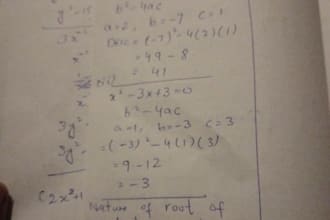 y² -15
b² - 4ac
a=2, b=-7 c=1
3x⁻
Disc = (-7)² - 4(2)(1)
= 49 - 8
= 41
x² - 3x + 3 = 0
b² - 4ac
3y²
a=1, b=-3 c=3
3y²
= (-3)² - 4(1)(3)
= 9 - 12
= -3
(2x²+1
Nature of root of